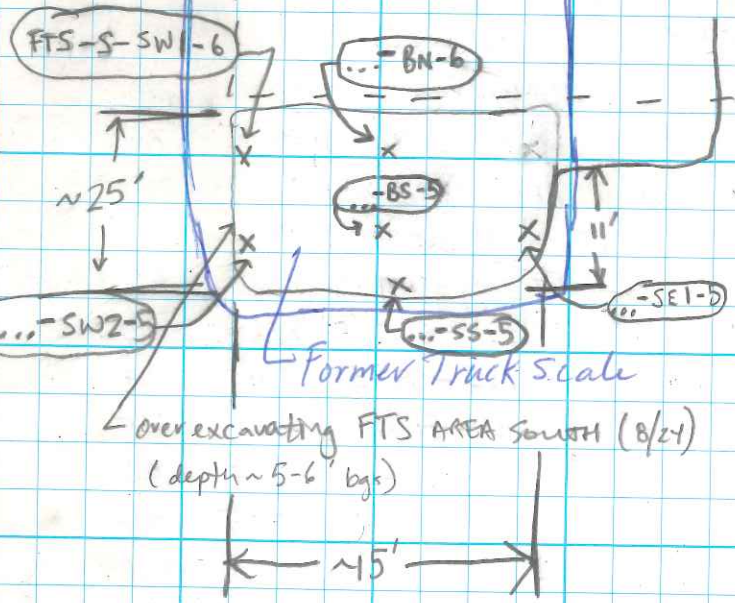 FTS-S-SW1-6
...-BN-6
~25'
...-BS-5
11'
...-SW2-5
...-SS-5
...-SE1-5
Former Truck Scale
over excavating FTS AREA SOUTH (8/24)
(depth ~ 5-6' bgs)
~15'